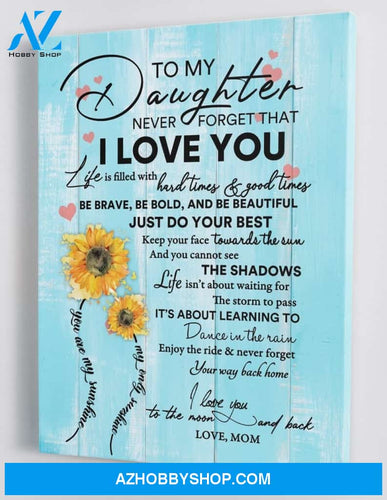 AZ
HOBBY SHOP
TO MY
Daughter
NEVER FORGET THAT
I LOVE YOU
Life is filled with hard times & good times
BE BRAVE, BE BOLD, AND BE BEAUTIFUL
JUST DO YOUR BEST
Keep your face towards the sun
And you cannot see
THE SHADOWS
Life isn't about waiting for
The storm to pass
IT'S ABOUT LEARNING TO
Dance in the rain
Enjoy the ride & never forget
Your way back home
I love you
to the moon and back
LOVE, MOM
you are my sunshine
my only sunshine
AZHOBBYSHOP.COM